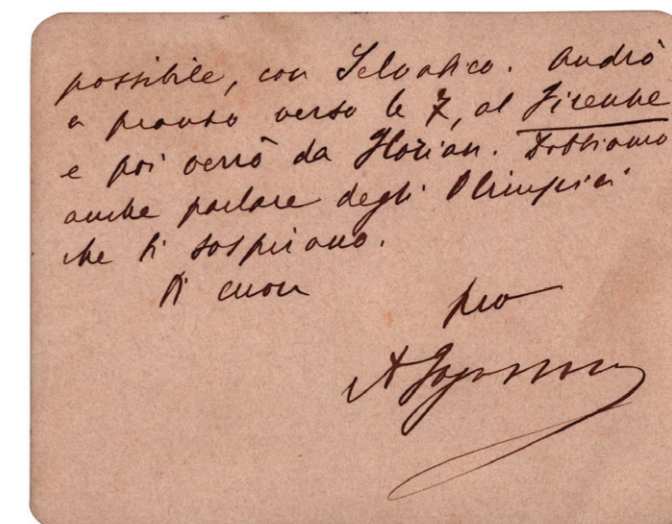 possibile, con Selvatico. Andrò
a pranzo verso le 7, al Firenze
e poi verrò da Florian. Dobbiamo
anche parlare degli Olimpici
che ti sospirano.
Di cuore
tuo
A Fogazzaro